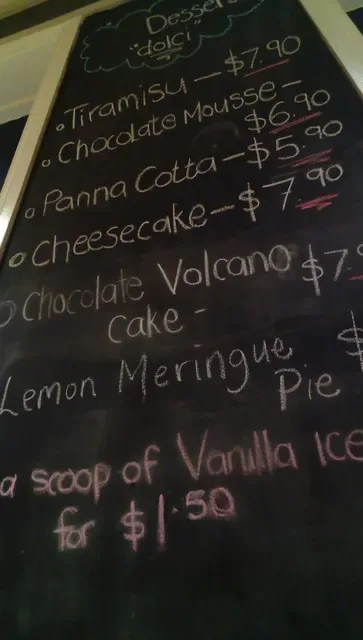 Desser
"dolci"
Tiramisu - $7.90
Chocolate Mousse -
$6.90
Panna Cotta - $5.90
Cheesecake - $7.90
Chocolate Volcano $7.
Cake -
Lemon Meringue $
Pie
a scoop of Vanilla ICE
for $1.50